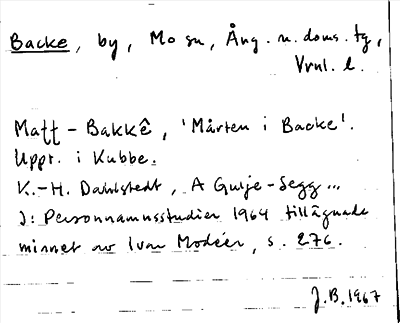 Backe, by, Mo sn, Ång. n. doms. tg,
Vrnl. l.
Matt-Bakkê, 'Mårten i Backe'.
Uppt. i Kubbe.
K.-H. Dahlstedt, A Gulje-Segg...
I: Personnamnsstudier 1964 tillägnade
minnet av Ivar Modéer, s. 276.
J.B. 1967